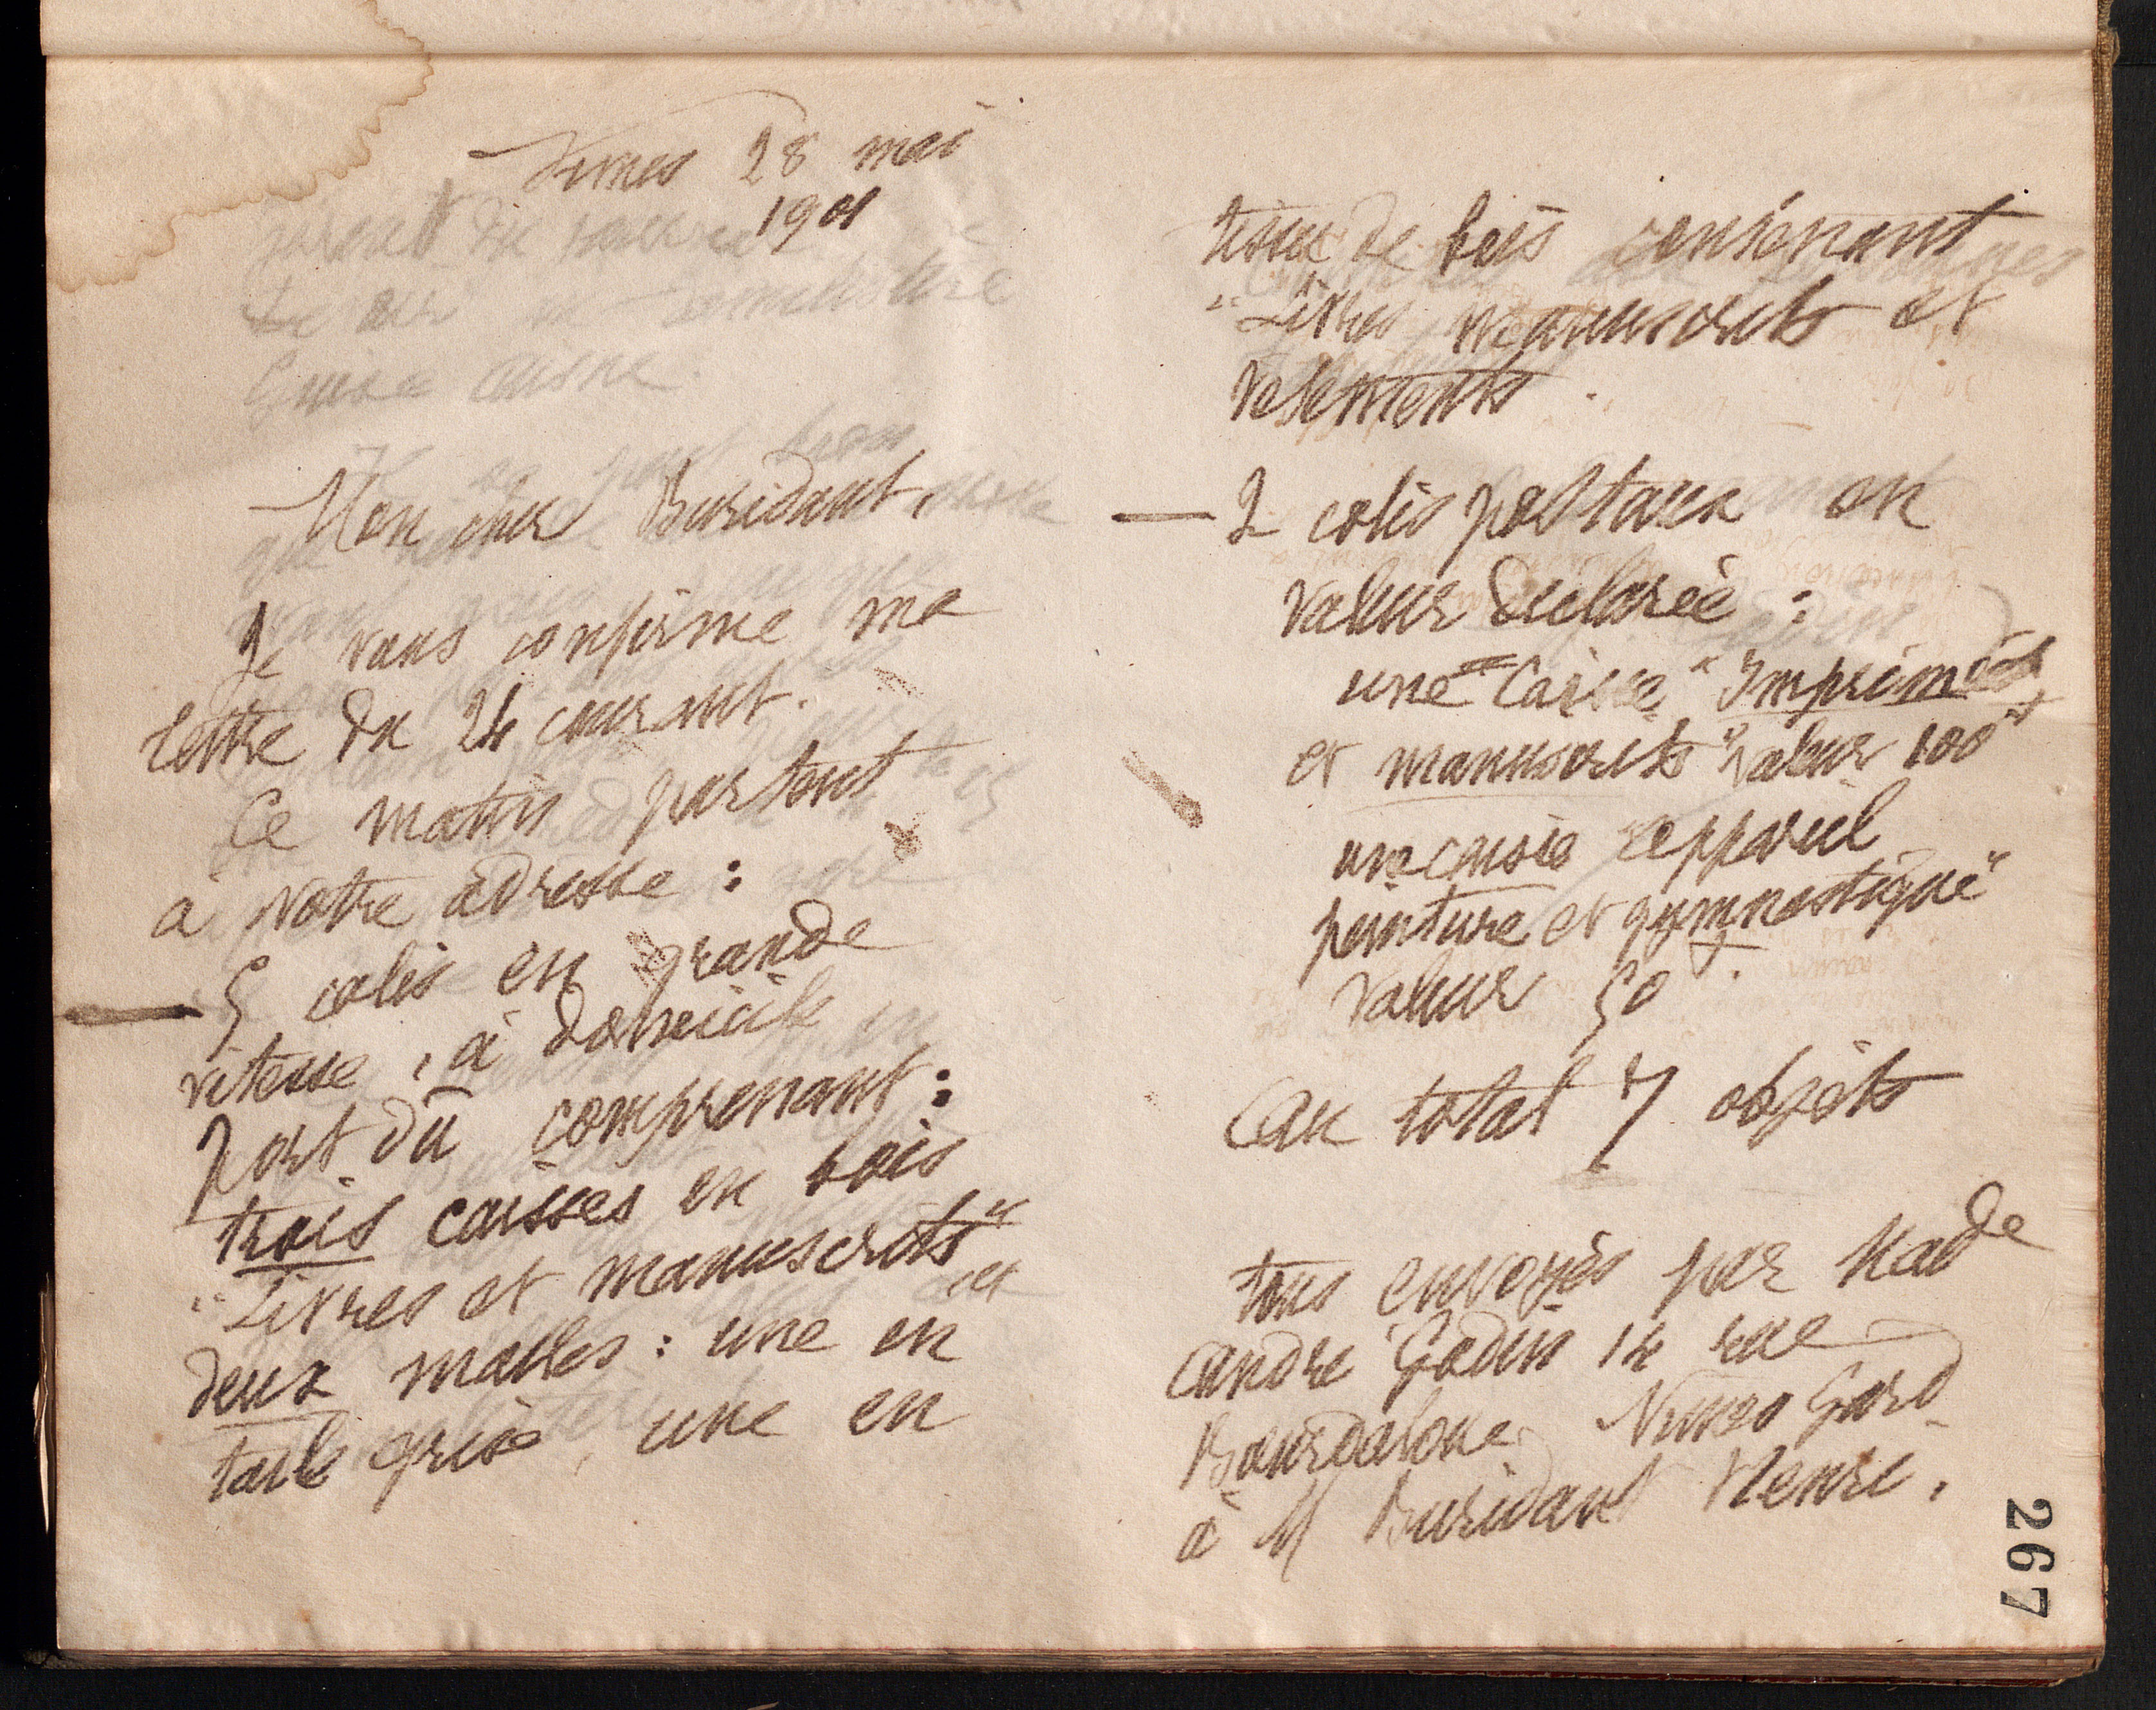 Nimes 28 mai
1901
Mon cher Buridant,
Je vous confirme ma
lettre du 24 courant.
Ce matin partent
à votre adresse :
— 5 colis en grande
vitesse, à domicile
port dû comprenant :
trois caisses en bois
"Livres et manuscrits" et
deux malles : une en
toile grise, une en
tissu de bois contenant
"Livres manuscrits et
vetements.
— 2 colis postaux en
valeur déclarée :
une caisse "Imprimés
et manuscrits" valeur 100f
une caisse "appareil
peinture et gymnastique"
valeur 50f.
Au total 7 objets
tous envoyés par Made
André Godin 14 rue
Bourdaloue Nimes Gard
à M Buridant Henri.
267